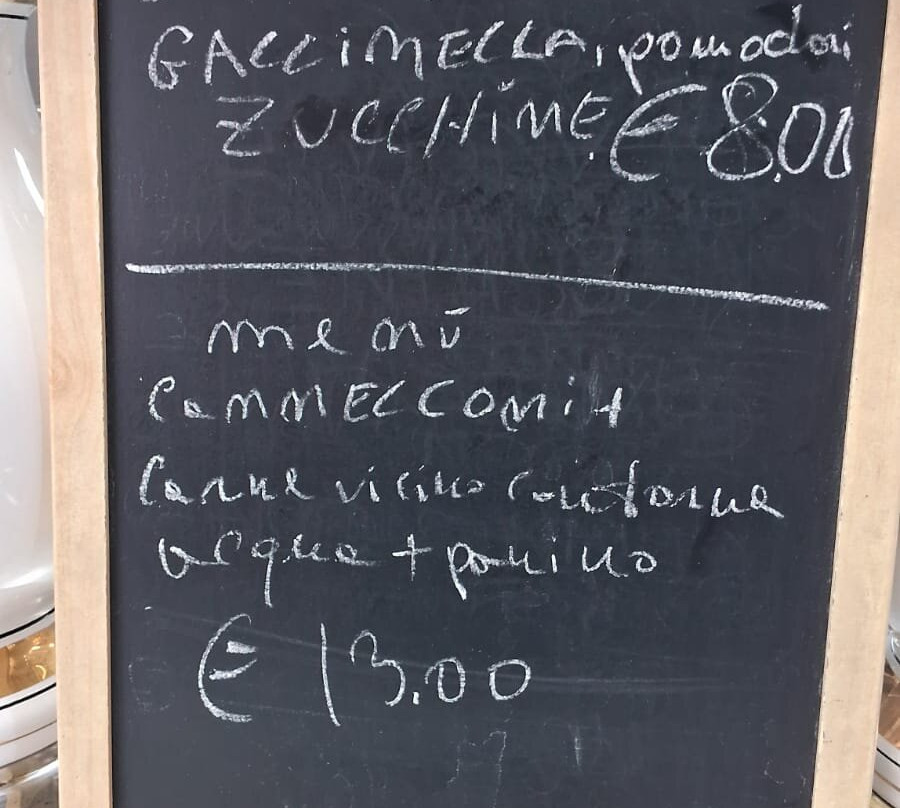 GALLINELLA, pomodori
ZUCCHINE € 8.00
menù
CANNELLONI +
Carne vicino contorno
acqua + panino
€ 13.00